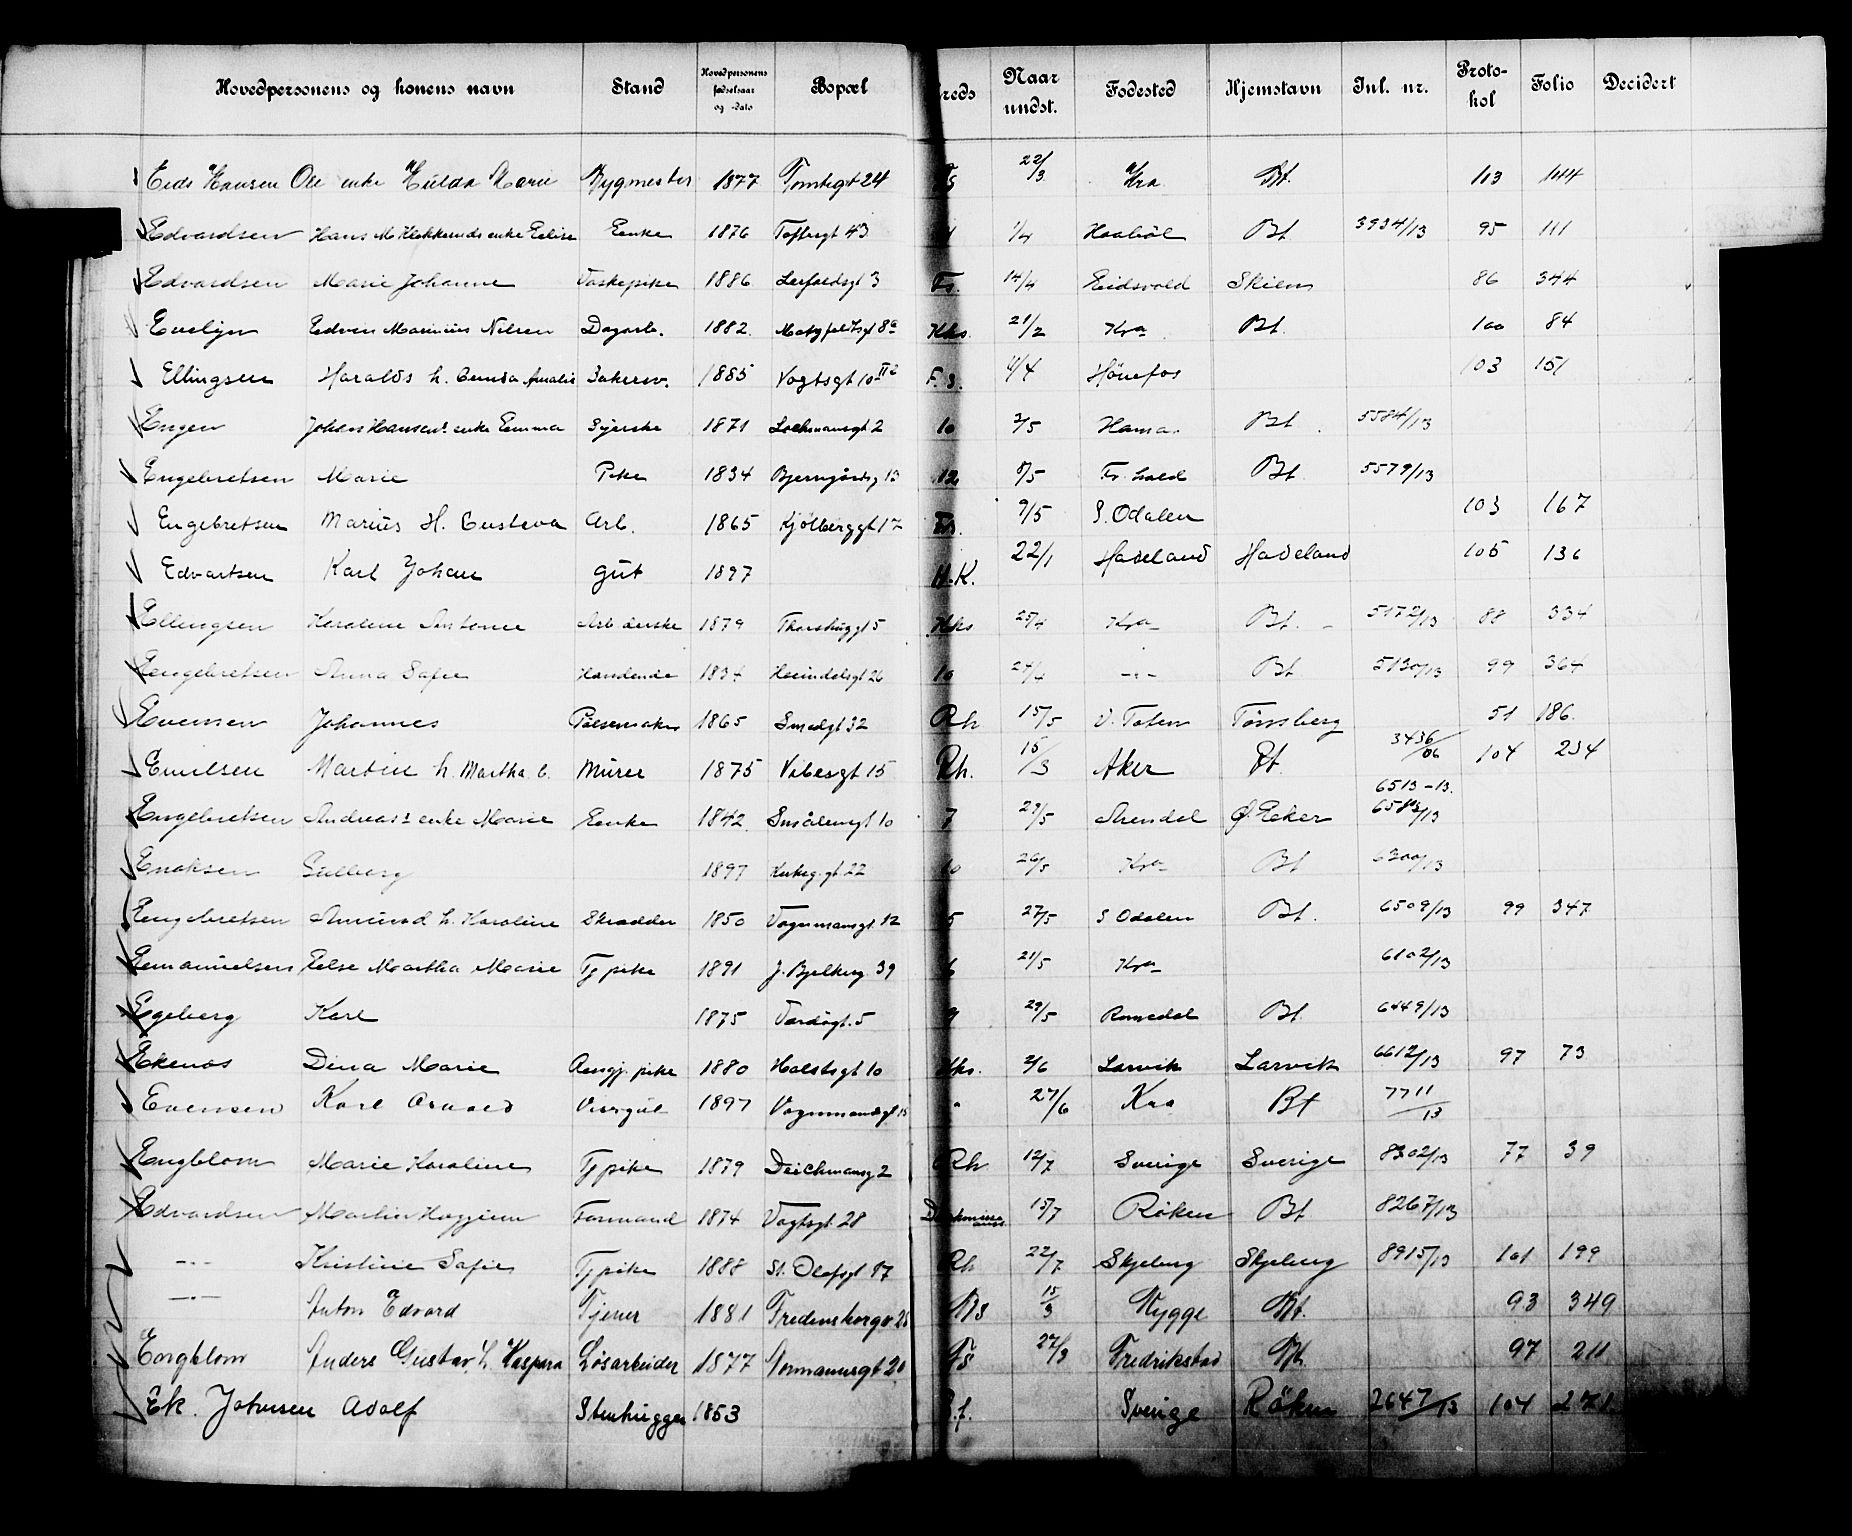 Hovedpersonens og konens navn Stand Hovedpersonens fødselsaar og -dato Bopæl Kreds Naar undst. Fødested Hjemstavn Jul. nr. Protokol Folio Decidert
Eids Hansen Ole enke Hulda Marie Bygmester 1877 Tomtegt 24 Fs 22/3 Kra Bt. 103 144
Edvardsen Hans M enke Enke 1876 Toftesgt 43 1/4 Haabøl Bt 3934/13 95 111
Edvardsen Marie Johanne Vaskepike 1886 3 Fs. 14/4 Eidsvold Skien 86 344
Evelyn Edvin Marinius Nilsen Dagarb. 1882 8a Kks. 21/2 Kra Bt. 100 84
Ellingsen Haralds h. Gunda Amalie 1885 Vogtsgt 10 F.s. 4/4 Hønefos 103 151
Engen Johan Hansens enke Emma Syerske 1871 Lochmansgt 2 10 2/5 Hamar Bt 5584/13
Engebretsen Marie Pike 1834 13 12 8/5 Fr. hald Bt 5579/13
Engebretsen Marius H. Gustava Arb. 1865 Kjølberggt 12 Fs. 9/5 S. Odalen 103 167
Edvartsen Karl Johan gut 1897 H.K. 22/1 Hadeland Hadeland 105 136
Ellingsen Karoline Antonie Arb derske 1879 5 Kks 25/4 Kra Bt. 5172/13 88 334
Engebretsen Anna Safie 1834 Heimdalsgt 26 10 24/4 -"- Bt 5130/13 99 364
Evensen Johannes Pølsemaker 1865 Smedgt 32 Rh 15/5 V. Toten Tønsberg 51 186
Emilsen Martin h. Martha G. Murer 1875 Vibesgt 15 Rh. 15/3 Aker Bt. 3436/06 104 234
6513-13.
Engebretsen Andreas's enke Marie Enke 1842 Smålensgt 10 7 29/5 Arendal Ø. Eker 6583/13
Enoksen Solberg 1897 Kirkeg.gt 22 10 26/5 Kra Bt 6300/13
Engebretsen Amund h. Karoline Skrædder 1850 Vognmansgt. 12 5 27/5 S Odalen Bt. 6509/13 99 347
Emanuelsen Else Martha Marie Tj pike 1891 J. Bjelkesg. 39 6 21/5 Kra 6102/13
Egeberg Karl 1875 Vardøgt. 5 9 29/5 Romedal Bt 6449/13
Ekenes Dina Marie Rengj. pike 1880 Holstsgt 10 Kks. 2/6 Larvik Larvik 6612/13 97 73
Evensen Karl Osvald Visergut 1897 Vognmandsgt 15 " 27/6 Kra Bt 7711/13
Engblom Marie Karoline Tj pike 1879 Deichmansg 2 Rh 12/7 Sverige Sverige 8302/13 77 39
Edvardsen Martin Formand 1874 Vogtsgt 28 15/7 Røken Bt 8267/13
-"- Kristine Safie Tj pike 1888 St. Olafsgt 17 Rh 22/7 Skjeberg Skjeberg 8915/13 101 199
-"- Anton Edvard Tjener 1881 Fredensborgv 28 Bs 15/3 Rygge Bt. 93 349
Engblom Anders Gustav h Kaspara Løsarbeider 1877 Normannsgt 20 Fs 27/3 Fredrikstad Bt 97 211
Ek. Johnsen Adolf Stenhugger 1853 B.f. Sverige Røken 2647/13 104 271